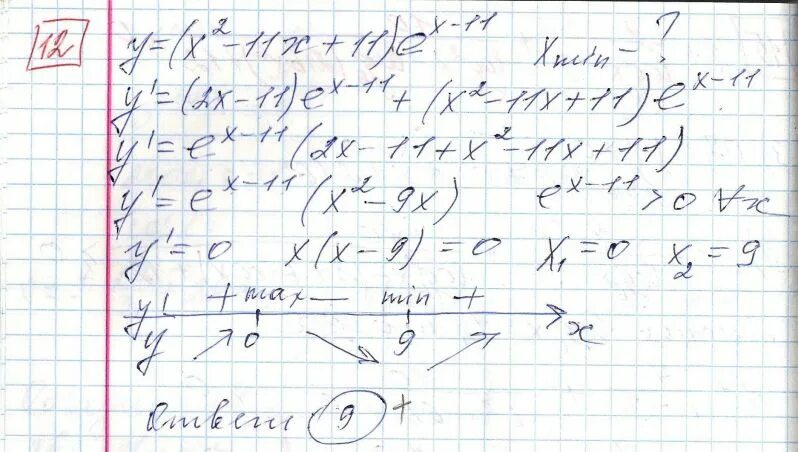 12 y = (x² - 11x + 11)e^(x-11) x min - ?
y' = (2x - 11)e^(x-11) + (x² - 11x + 11)e^(x-11)
y' = e^(x-11) (2x - 11 + x² - 11x + 11)
y' = e^(x-11) (x² - 9x) e^(x-11) > 0 ∀x
y' = 0 x(x - 9) = 0 x₁ = 0 x₂ = 9
y' + max — min + x
y ↗ 0 ↘ 9 ↗
Ответ 9 +